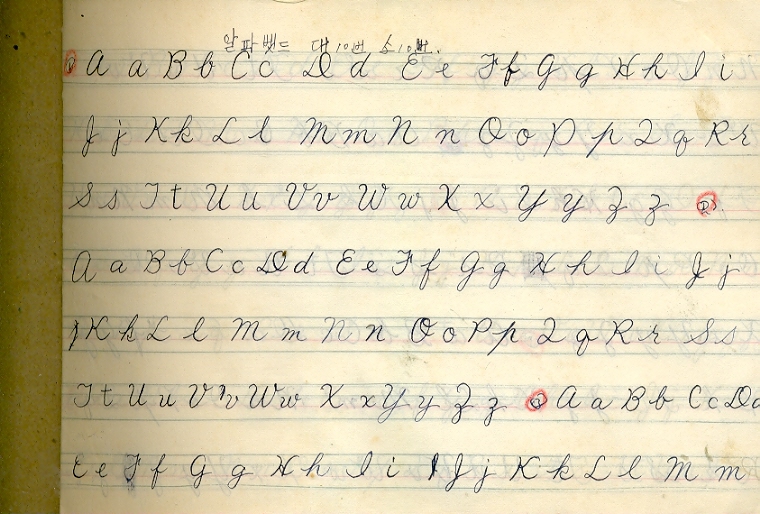 알파벳드 대10번 소10번.
① A a B b C c D d E e F f G g H h I i
J j K k L l M m N n O o P p Q q R r
S s T t U u V v W w X x Y y Z z ②.
A a B b C c D d E e F f G g H h I i J j
K k L l M m N n O o P p Q q R r S s
T t U u V v W w X x Y y Z z ③ A a B b C c D d
E e F f G g H h I i J j K k L l M m